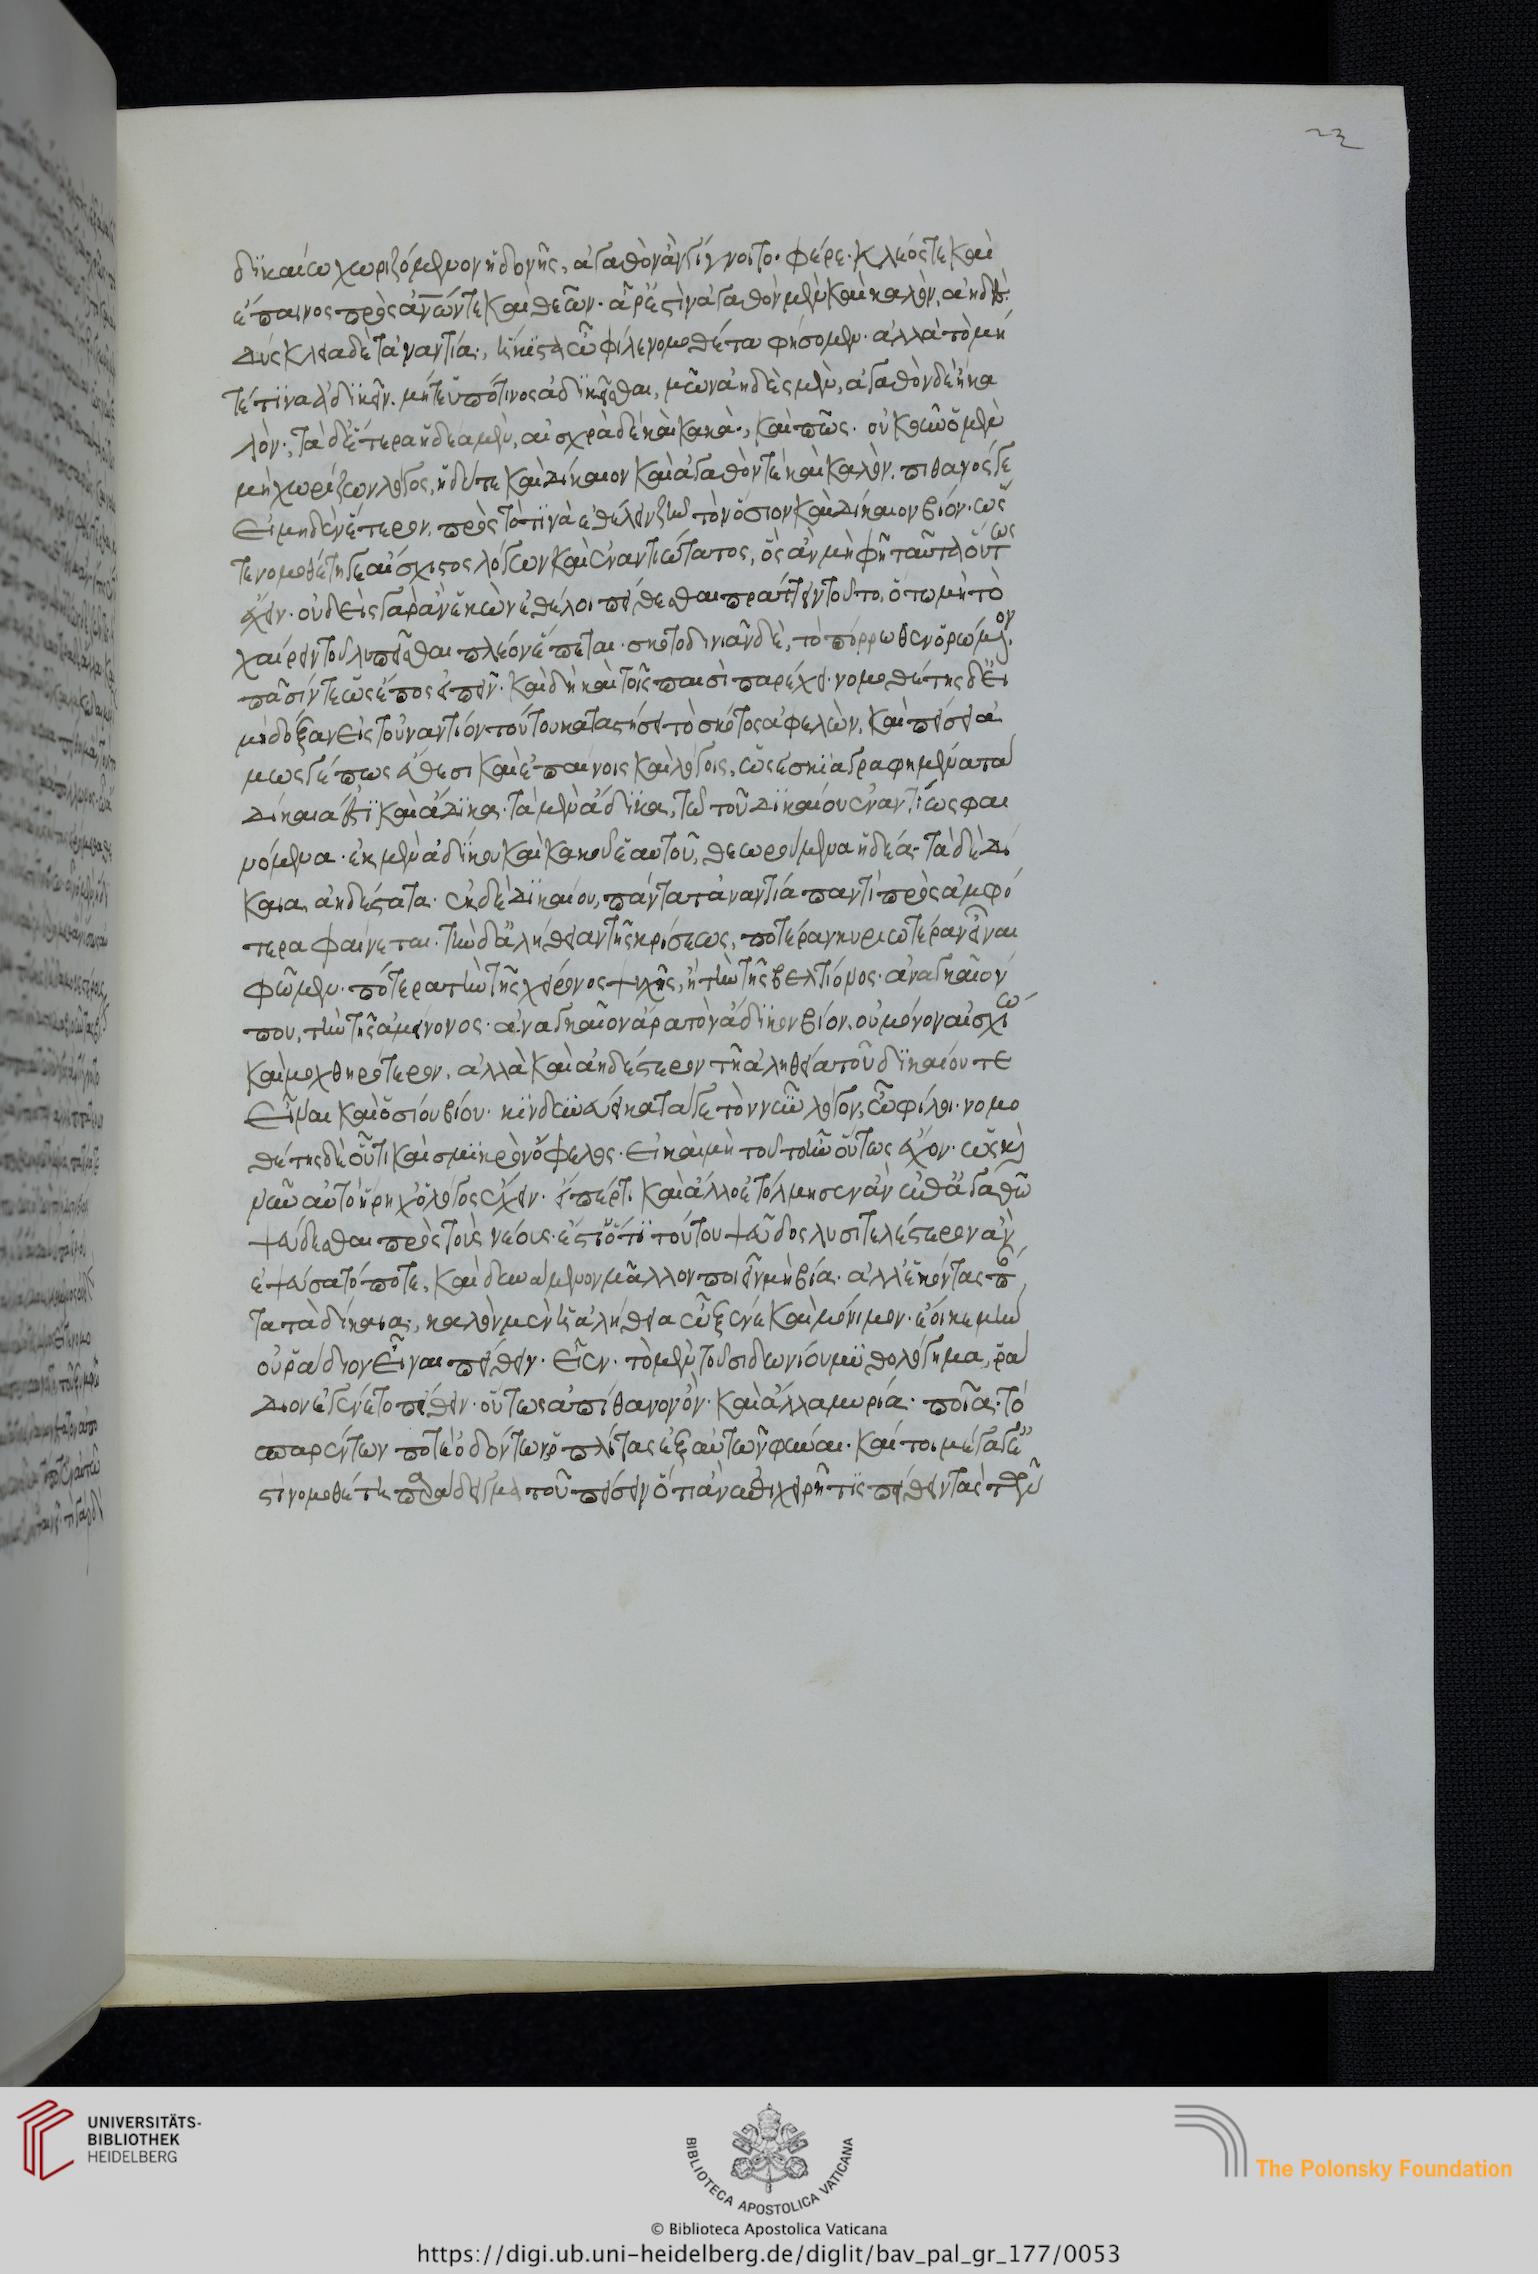 23
δικαίω χωριζόμενον ἡδονῆς, ἀγαθὸν ἂν γίγνοιτο· φέρε· κλέός τε καὶ
ἔπαινος πρὸς ἀν̅ω̅ν τε καὶ θεῶν· ἆρ' ἐστὶν ἀγαθὸν μὲν καὶ καλόν, ἀηδὲς·
δύσκλεια δὲ τἀναντία·, ἥκιστα ὦ φίλε νομοθέτα φήσομεν· ἀλλὰ τὸ μή
τέ τινα ἀδικεῖν· μήτε ὑπό τινος ἀδικεῖσθαι, μῶν ἀηδὲς μὲν, ἀγαθὸν δὲ ἢ κα
λόν·, τὰ δ' ἕτερα ἡδέα μὲν, αἰσχρὰ δὲ καὶ κακά·, καὶ πῶς· οὐκοῦν ὁ μὲν
μὴ χωρίζων λόγος, ἡδύ τε καὶ δίκαιον καὶ ἀγαθόν τε καὶ καλὸν, πιθανός γε
εἰ μηδὲν ἕτερον, πρὸς τό τινα ἐθέλειν ζῆν τὸν ὅσιον καὶ δίκαιον βίον· ὥς
τε νομοθέτη γε αἴσχιστος λόγων καὶ ἐναντιώτατος, ὃς ἂν μὴ φῇ ταῦτα οὕτως
ἔχειν· οὐδεὶς γὰρ ἂν ἑκὼν ἐθέλοι πείθεσθαι πράττειν τοῦτο, ὅτω μὴ τὸ
χαίρειν τοῦ λυπεῖσθαι πλέον ἕπεται· σκοτοδινιᾶν δὲ, τὸ πόρρωθεν ὁρώμενον
πᾶσίν τε ὡς ἔπος εἰπεῖν· καὶ δὴ καὶ τοῖς παισὶ παρέχει· νομοθέτης δ' εἰ
μὴ δόξαν εἰς τοὐναντίον τούτου καταστήσει τὸ σκότος ἀφελὼν, καὶ πείσει ἁ
μῶς γέ πως ἔθεσι καὶ ἐπαίνοις καὶ λόγοις, ὡς ἐσκιαγραφημένα τὰ
δίκαιά ἐστι καὶ ἄδικα· τὰ μὲν ἄδικα, τῷ τοῦ δικαίου ἐναντίως φαι
νόμενα· ἐκ μὲν ἀδίκου καὶ κακοῦ ἑαυτοῦ, θεωρούμενα ἡδέα· τὰ δὲ δί
καια ἀηδέστατα· ἐκ δὲ δικαίου, πάντα τἀναντία παντὶ πρὸς ἀμφό
τερα φαίνεται· τὴν δ' ἀλήθειαν τῆς κρίσεως, ποτέραν κυριωτέραν εἶναι
φῶμεν· πότερα τὴν τῆς χείρονος ψυχῆς, ἢ τὴν τῆς βελτίονος· ἀναγκαῖόν
που, τὴν τῆς ἀμείνονος· ἀναγκαῖον ἄρα τὸν ἄδικον βίον, οὐ μόνον αἰσχίω
καὶ μοχθηρότερον, ἀλλὰ καὶ ἀηδέστερον τῇ ἀληθεία τοῦ δικαίου τε
εἶναι καὶ ὁσίου βίου· κινδυνεύει κατά γε τὸν νῦν λόγον, ὦ φίλοι· νομο
θέτης δὲ οὗ τι καὶ σμικρὸν ὄφελος· εἰ καὶ μὴ τοῦτο ἦν οὕτως ἔχον· ὡς καὶ
νῦν αὐτὸ ᾕρηχ' ὁ λόγος ἔχειν· εἴπερ τι καὶ ἄλλο ἐτόλμησεν ἂν ἐπ' ἀγαθῶ
ψεύδεσθαι πρὸς τοὺς νέους· ἔστι ὅ τι τούτου ψεῦδος λυσιτελέστερον ἂν
ἐψεύσατό ποτε, καὶ δυνάμενον μᾶλλον ποιεῖν μὴ βία· ἀλλ' ἑκόντας πάν
τα τὰ δίκαια·, καλὸν μὲν ἡ ἀλήθεια ὦ ξένε καὶ μόνιμον· ἔοικε μὴν
οὐ ῥάδιον εἶναι πείθειν· εἶεν· τὸ μὲν τοῦ σιδωνίου μυθολόγημα, ῥά
διον ἐγένετο πείθειν· οὕτως ἀπίθανον ὄν· καὶ ἄλλα μυρία· ποῖα· τὸ
σπαρέντων ποτὲ ὀδόντων ὁπλίτας ἐξ αὐτῶν φῦναι· καί τοι μέγα γ' ἐ
στὶ νομοθέτη παράδειγμα τοῦ πείσειν ὅ τι ἂν ἐπιχειρῇ τις πείθειν τὰς τῶν
UNIVERSITÄTS-
BIBLIOTHEK
HEIDELBERG
BIBLIOTECA APOSTOLICA VATICANA
© Biblioteca Apostolica Vaticana
The Polonsky Foundation
https://digi.ub.uni-heidelberg.de/diglit/bav_pal_gr_177/0053